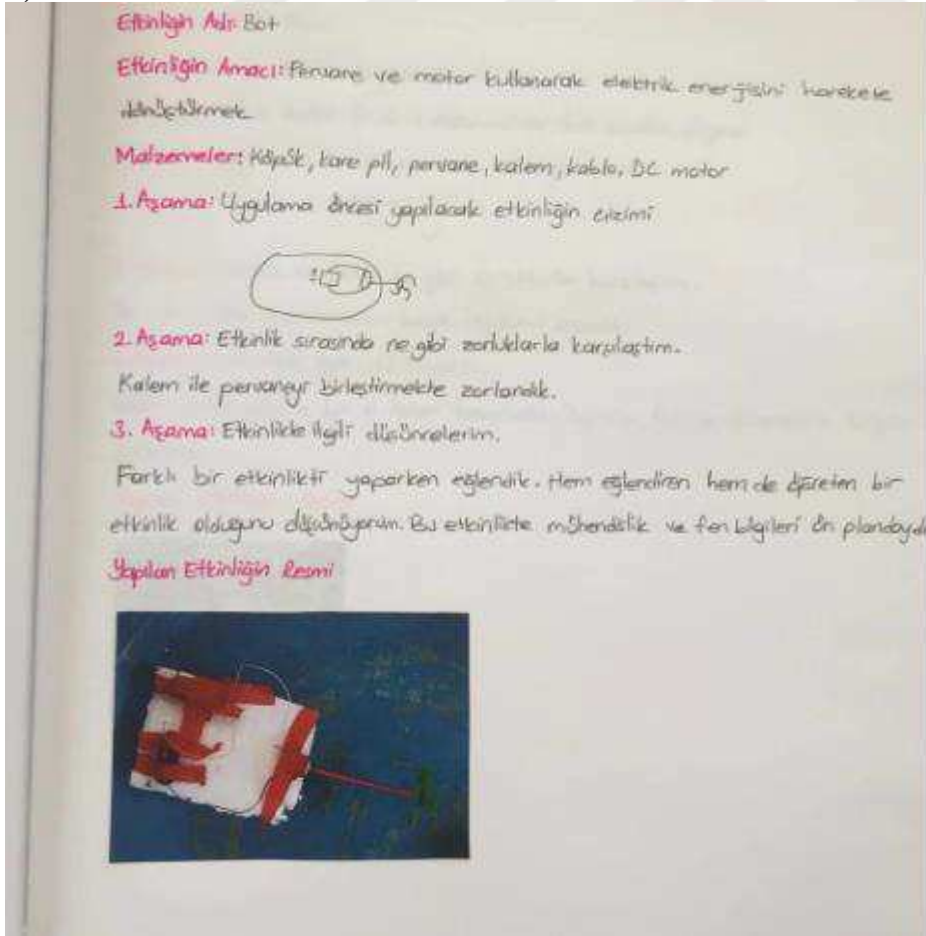 Etkinliğin Adı: Bot
Etkinliğin Amacı: Pervane ve motor kullanarak elektrik enerjisini harekete
dönüştürmek
Malzemeler: Köpük, kare pil, pervane, kalem, kablo, DC motor
1. Aşama: Uygulama öncesi yapılacak etkinliğin çizimi
2. Aşama: Etkinlik sırasında ne gibi zorluklarla karşılaştım.
Kalem ile pervaneyi birleştirmekte zorlandık.
3. Aşama: Etkinlikle ilgili düşüncelerim.
Farklı bir etkinlikti yaparken eğlendik. Hem eğlendiren hem de öğreten bir
etkinlik olduğunu düşünüyorum. Bu etkinlikte mühendislik ve fen bilgileri ön plandaydı
Yapılan Etkinliğin Resmi